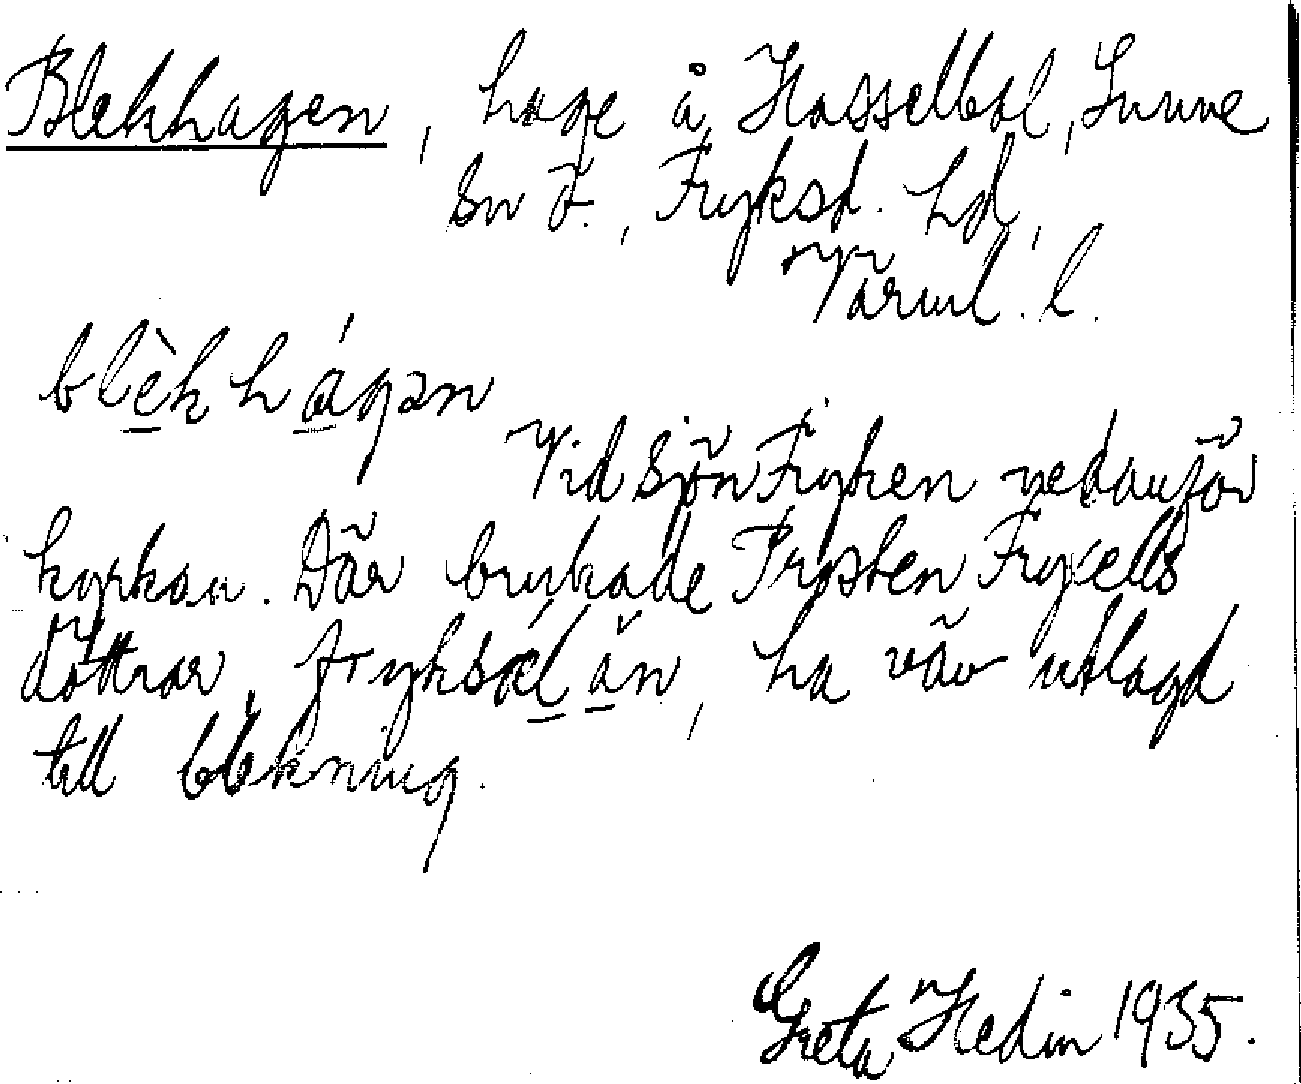 Blekhagen, hage å Hasselbol, Sunne
sn Ö., Fryksd. hd,
Värml. l.
blèkhágən
Vid sjön Fryken nedanför
kyrkan. Där brukade Prosten Fryxells
döttrar, fryksǽlan, ha väv utlagd
till blekning.
Greta Hedin 1935.